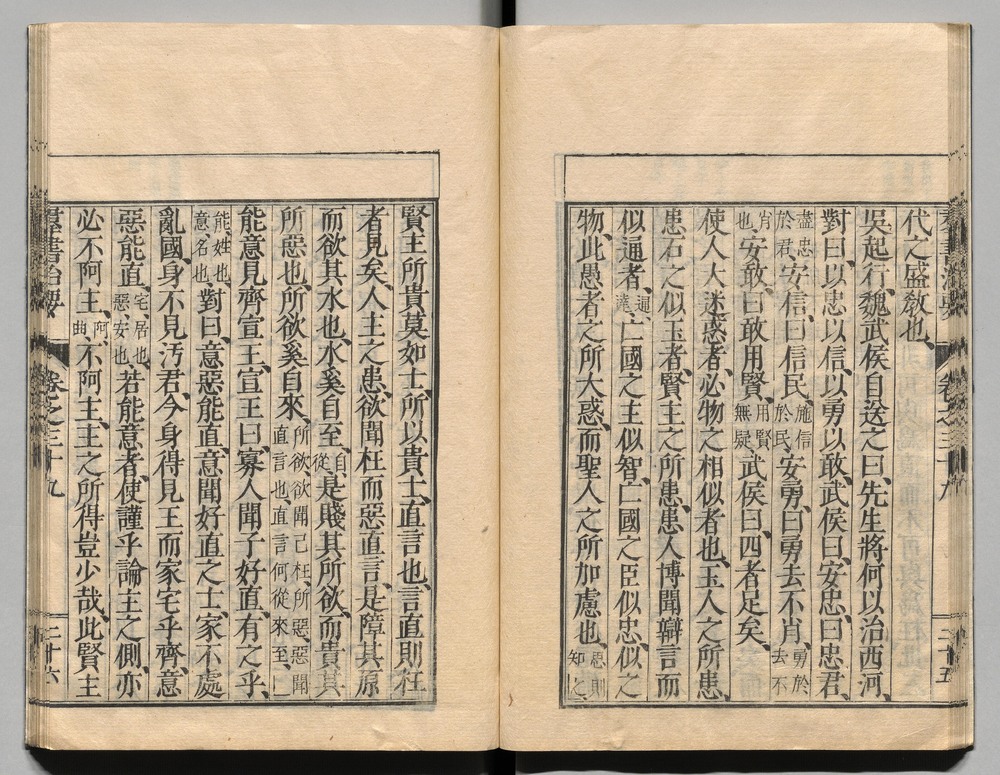 代之盛敎也、
吳起行、魏武侯自送之曰、先生將何以治西河、
對曰、以忠以信、以勇以敢、武侯曰、安忠、曰忠君、
盡忠於君、安信、曰信民、施信於民、安勇、曰勇去不肖、勇於去不
肖也、安敢、曰敢用賢、用賢無疑、武侯曰、四者足矣、
使人大迷惑者、必物之相似者也、玉人之所患、
患石之似玉者、賢主之所患、患人博聞辯言而
似通者、通達、亡國之主似智、亡國之臣似忠、似之
物、此愚者之所大惑、而聖人之所加慮也、思則知之、
羣書治要 卷之三十九 二十五
賢主所貴莫如士、所以貴士、直言也、言直則枉
者見矣、人主之患、欲聞枉而惡直言、是障其原
而欲其水也、水奚自至、自從、是賤其所欲、而貴其
所惡也、所欲奚自來、所欲欲聞己枉、所惡惡聞直言也、直言何從來至、
能意見齊宣王、宣王曰、寡人聞子好直、有之乎、
能姓也、意名也、對曰、意惡能直、意聞好直之士、家不處
亂國、身不見汚君、今身得見王、而家宅乎齊、意
惡能直、宅、居也、惡、安也、若能意者、使謹乎論主之側、亦
必不阿主、阿、曲、不阿主、主之所得豈少哉、此賢主
羣書治要 卷之三十九 二十六